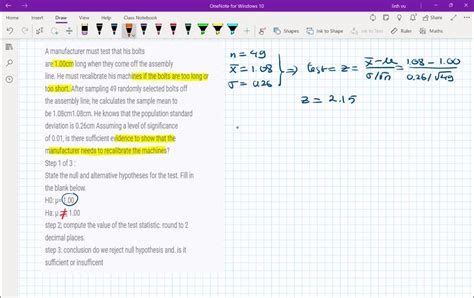 OneNote for Windows 10
linh vu
Home Insert Draw View Help Class Notebook
A manufacturer must test that his bolts
are 1.00cm long when they come off the assembly
line. He must recalibrate his machines if the bolts are too long or
too short. After sampling 49 randomly selected bolts off
the assembly line, he calculates the sample mean to
be 1.08cm1.08cm. He knows that the population standard
deviation is 0.26cm Assuming a level of significance
of 0.01, is there sufficient evidence to show that the
manufacturer needs to recalibrate the machines?
Step 1 of 3 :
State the null and alternative hypotheses for the test. Fill in
the blank below.
H0: μ=1.00
Ha: μ ≠ 1.00
step 2; compute the value of the test statistic. round to 2
decimal places.
step 3. conclusion do we reject null hypothesis and. is it
sufficient or insufficent
n = 49
x̄ = 1.08
σ = 0.26
⇒ test = z = (x̄ - μ)/(σ/√n) = (1.08 - 1.00)/(0.26/√49)
z = 2.15